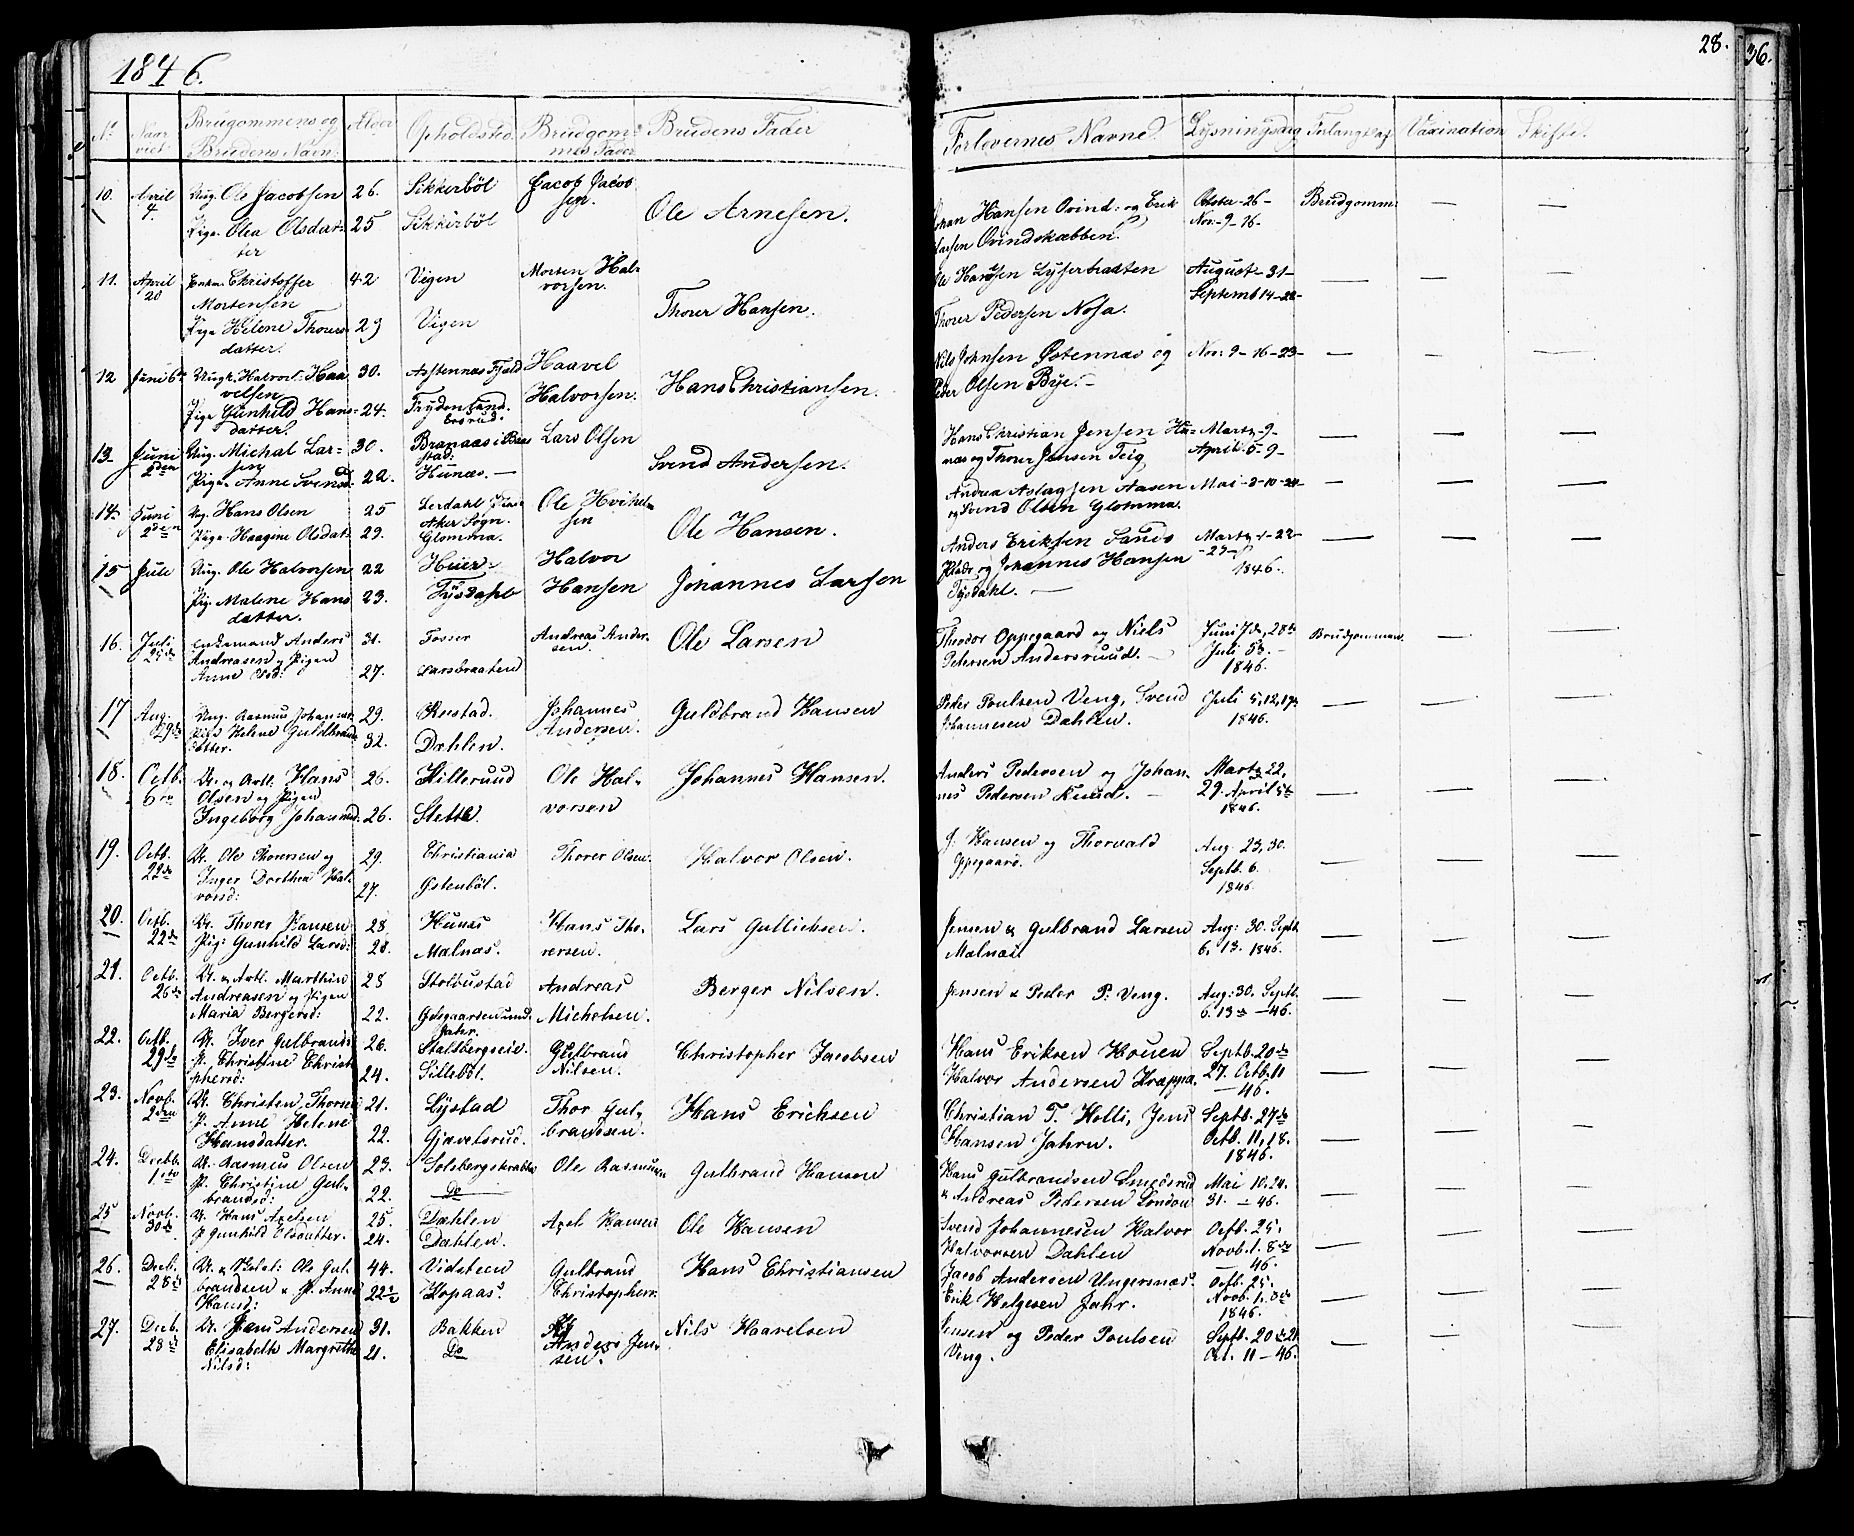 1846.
28.
36.
No Naar viet Brudgommens og Brudens Navn Alder Opholdsted Brudgommens Fader Brudens Fader Forlovernes Navne Lysningsdag Forlangt af Vaxination Skifte
10. April 4. Ung. Ole Jacobsen 26. Sikkerböl Jacob Jacobsen. Ole Arnesen. Hansen Ovind: og Erik Octobr 26 - Brudgomm:
Pige. Olea Olsdatter 25 Sikkerböl Larsen Ovindskæbben. Nov. 9 - 16 -
11. April 20 Enkm. Christoffer Mortensen 42 Vigen Morten Halvorsen. Thorer Hansen. Ole Hansen August - 31 - Septemb 14 - 
Pige Helene Thorersdatter. 29 Vigen Thorer Pedersen Nosa.
12 Juni 6 Ungk. Halvor Haavelsen 30. Haavel Halvorsen. Hans Christiansen. Nils Johnsen Østennæs og Nov: 9 - 16 - 23 -
Pige Gunhild Hansdatter. 24. Frydenlund. Peder Olsen Bye. -
13 Juni 2den Ung. Michal Larsen 30. Branaas i Lars Olsen Svend Andersen. Hans Christian Jensen Hunæs og Thorer Jensen Teig Marts - 9 -
Pige Anne Svends 22. Hunæs. - April. 5 - 9 -
14 Juni 2den Ung. Hans Olsen 25 Aker Sogn. Ole Ole Hansen. Andrea Aslagsen Aasen Mai - 3 - 10 - 24 -
Pige. Haagine Olsdat 29. Glomma. og Svend Olsen Glomma.
15 Juli Ung. Ole Halvorsen 22 Heier Halvor Hansen Johannes Larsen Anders Eriksen Sands Marts - 22 - 29 - 1846.
Pig. Malene Hansdatter. 23. Tysdahl og Johannes Hansen Tysdahl. -
16. Juli Enkemand Anders Andreasen og Pigen 31. Fosser Andreas Andersen. Ole Larsen Theodor Oppegaard og Niels Juni 7de, 28de Brudgommen.
Anne Olsd: 27. Larsbraaten Petersen Andersruud. - Juli 5. 1846.
17 Aug. 29de Ung. Rasmus Johannes 29. Rustad. Johannes Andersen. Guldbrand Hansen Peder Poulsen Veng, Svend Juli 5, 12, 19
Pige Helene Guldbrandsdatter. 32. Dahlen. Johannesen Dahlen. 1846.
18. Octb. 6te U. og Artl. Hans Olsen og Pigen 26. Hilleruud Ole Halvorsen Johannes Hansen. Anders Pedersen og Johannes Pedersen Kuud. - Marts 22, 29. April 5te 1846.
Ingeborg Johannsd. 26. Slette.
19. Octb. 22de U. Ole Thorersen og 29. Christiania Thorer Olsen. Halvor Olsen. J. Hansen og Thorvald Oppegaard. Aug. 23, 30. Septb. 6. 1846.
Inger Dorthea Halvorsd: 27. Østenböl.
20. Octb. 22de U. Thorer Hansen 28. Hunæs Hans Thorersen. Lars Gulliksen. Jensen & Gulbrand Larsen Malnæs Aug: 30. Septb. 6. 13. 1846.
Pig: Gunhild Larsd: 28. Malnæs.
21. Octb. 26de U. & Artl. Marthin Andreasen og Pigen 28 Stolbustad Andreas Michelsen. Berger Nilsen. Jensen & Peder P: Veng. Aug: 30. Septb. 6. 13de - 46.
Maria Bergersd: 22.
22. Octb. 29de U. Iver Gulbrands 26. Staltbergseie. Gulbrand Nilsen. Christopher Jacobsen Hans Eriksen Houen Septb. 20de
P. Christine Christophersd: 24. Sillebøl. Halvor Andersen Krappa. 27. Octb. 11 - 46.
23. Novb. 2den U. Christen Thorsen 21. Lystad Thor Gulbrandsen. Hans Erichsen Christian T. Holli, Jens Septb. 27de
P. Anne Helene Hansdatter. 22. Gjævelsrud. Hansen Jahru. Octb. 11, 18. 1846.
24. Decbb. 1ste U. Rasmus Olsen 23. Solbergskrabbe Ole Rasmusen Gulbrand Hansen Hans Gulbrandsen Smedsrud Mai 10. 24.
P. Christine Gulbrandsd: 22. Do & Andreas Pedersen London 31. - 46.
25 Novb. 30de U. Hans Axelsen 25. Dæhlen Axel Hansen Ole Hansen Svend Johannesen Halvor Octb. 25.
P Gunhild Olsdatter. 24. Dæhlen. Halvorsen Dahlen Novb. 1. 8de - 46.
26. Decb. 28de U. & Ole Gulbrandsen & P. Anne 44. Vidsteen Gulbrand Christophers: Hans Christiansen Jacob Andersen Ungersnæs. Octb. 25.
Hansd: 22 Kopaas. Erik Helgesen Jahr. Novb. 1. 8de 1846.
27. Decb. 28de U. Jens Andersen 31. Bakken Anders Jensen. Nils Haavelsen Jensen og Peder Poulsen Veng. Septb. 20de
Elisabeth Margrethe Nilsd: 21. Do Oct. 11 - 46.